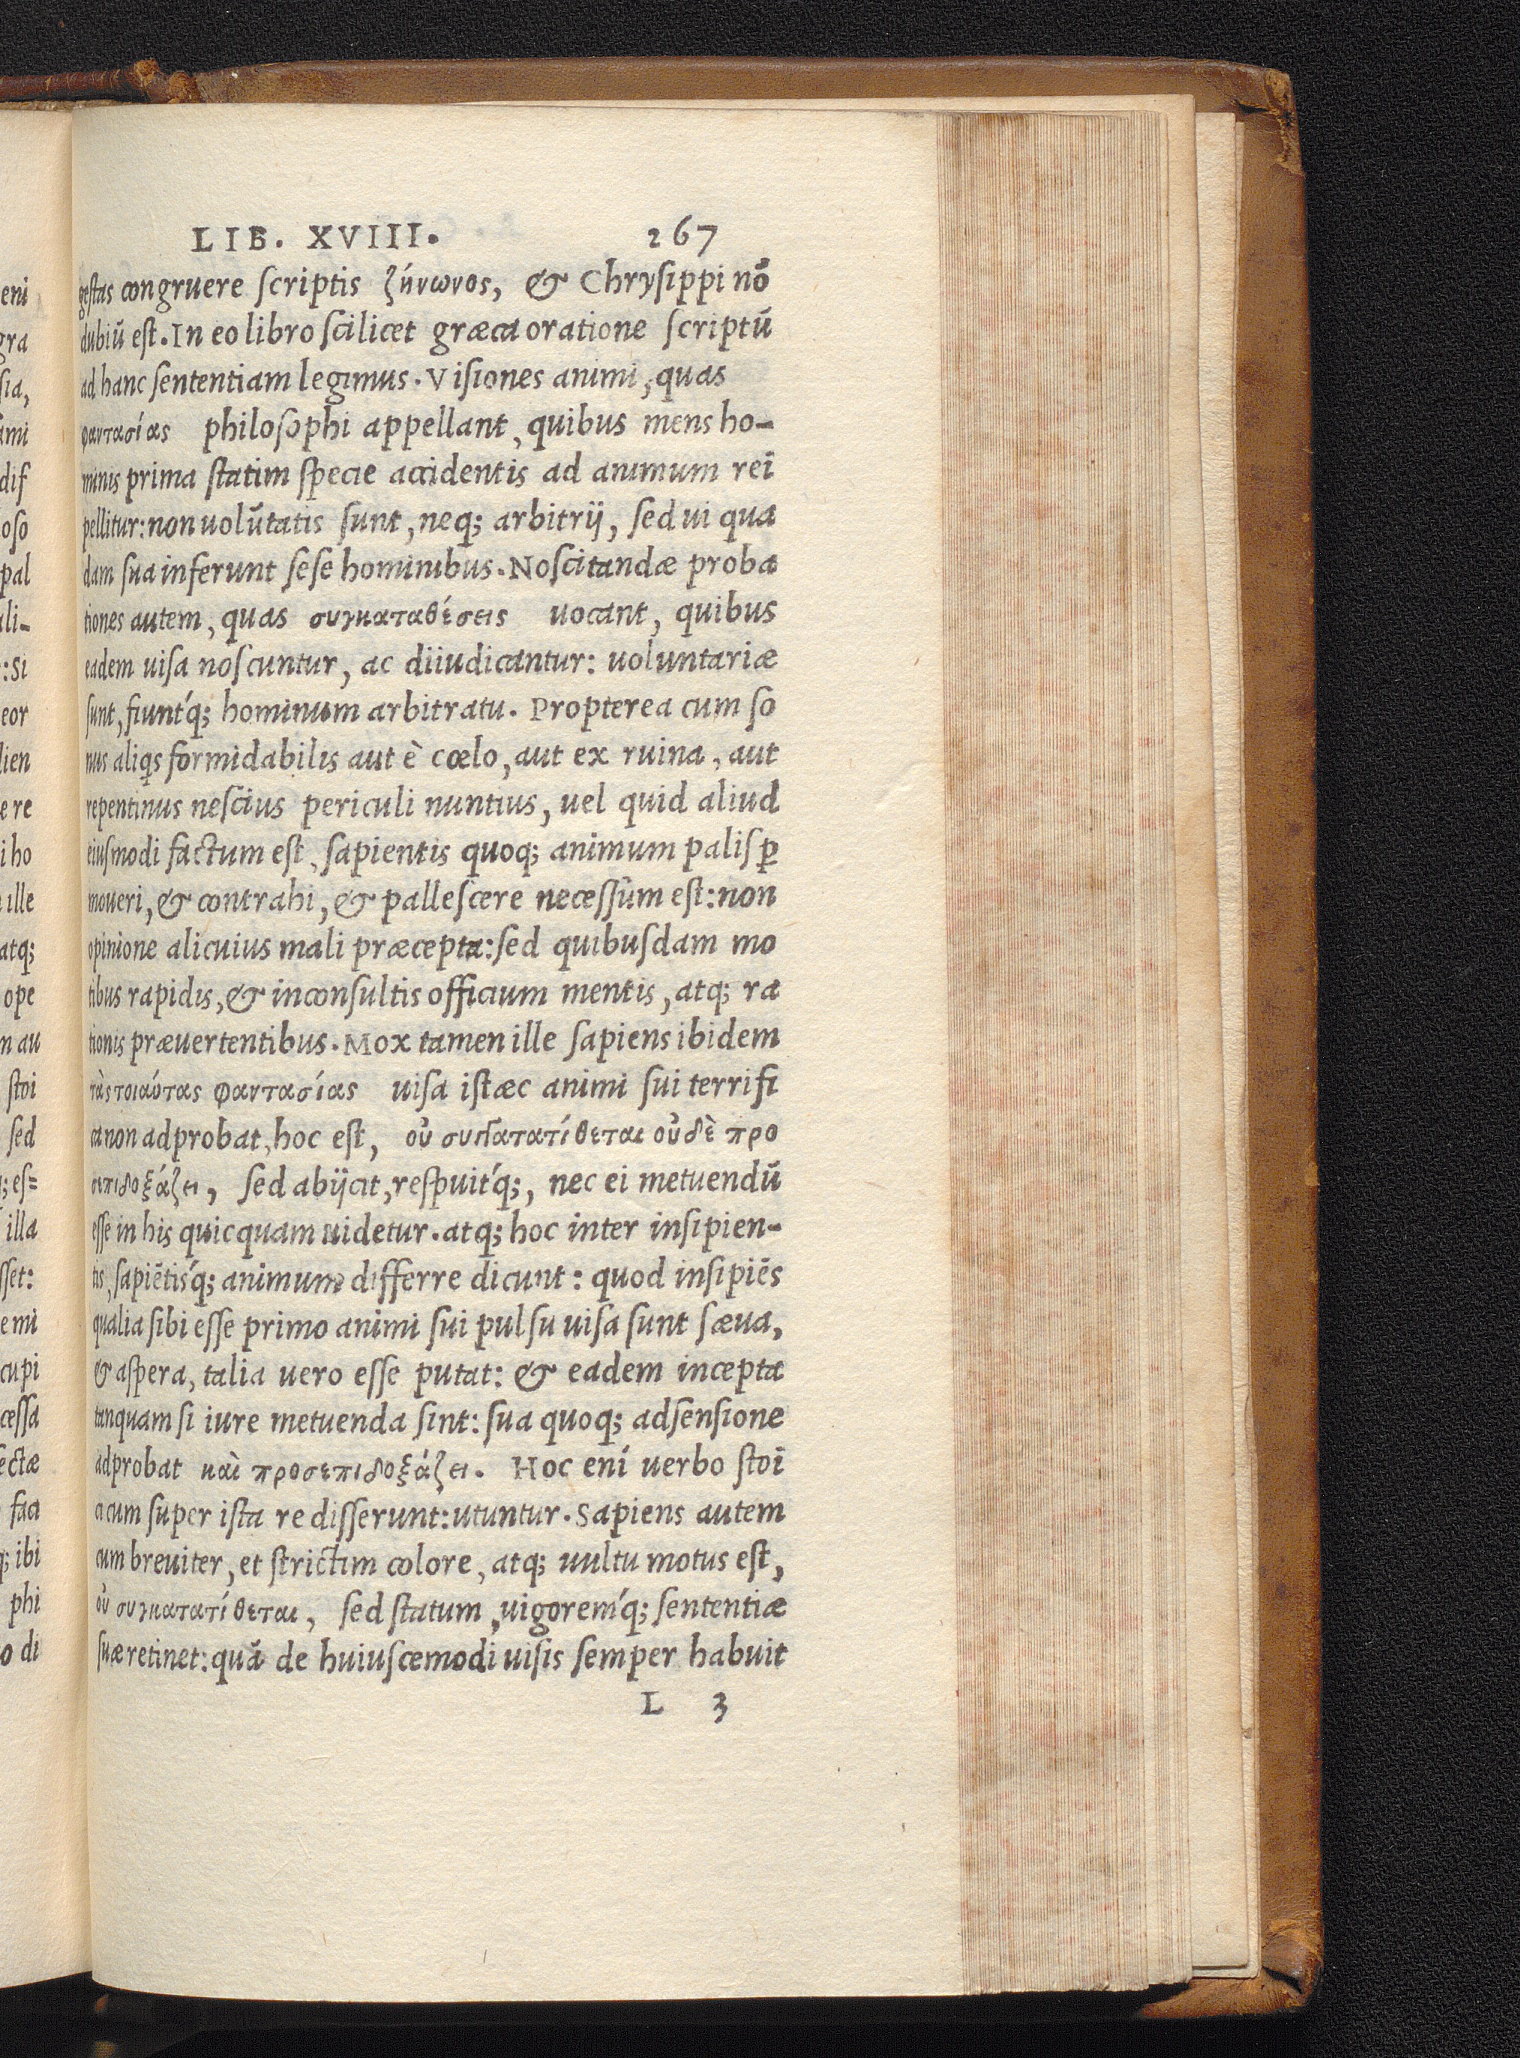 LIB. XVIII. 267
gestas congruere scriptis ζήνωνος, & Chrysippi nō
dubiū est. In eo libro scilicet græca oratione scriptū
ad hanc sententiam legimus. Visiones animi, quas
φαντασίας philosophi appellant, quibus mens ho-
minis prima statim specie accidentis ad animum rei
pellitur: non volūtatis sunt, neq; arbitrij, sed ui qua
dam sua inferunt sese hominibus. Noscitandæ proba
tiones autem, quas συγκαταθέσεις uocant, quibus
eadem uisa noscuntur, ac diiudicantur: uoluntariæ
sunt, fiuntq́; hominum arbitratu. Propterea cum so
nus aliqs formidabilis aut è cœlo, aut ex ruina, aut
repentinus nescius periculi nuntius, uel quid aliud
eiusmodi factum est, sapientis quoq; animum palisꝑ
moueri, & contrahi, & pallescere necessum est: non
opinione alicuius mali præcepta: sed quibusdam mo
tibus rapidis, & inconsultis officium mentis, atq; ra
tionis præuertentibus. Mox tamen ille sapiens ibidem
τὰς τοιαύτας φαντασίας uisa istæc animi sui terrifi
ca non adprobat, hoc est, οὐ συγκατατίθεται οὐδὲ προ
σεπιδοξάζει, sed abijcit, respuitq́;, nec ei metuendū
esse in his quicquam uidetur. atq; hoc inter insipien-
tis, sapiētisq́; animum differre dicunt: quod insipiēs
qualia sibi esse primo animi sui pulsu uisa sunt sæua,
& aspera, talia uero esse putat: & eadem incepta
tanquam si iure metuenda sint: sua quoq; adsensione
adprobat καὶ προσεπιδοξάζει. Hoc eni uerbo stoi
ci cum super ista re disserunt: utuntur. Sapiens autem
cum breuiter, et strictim colore, atq; uultu motus est,
οὐ συγκατατίθεται, sed statum, uigoremq́; sententiæ
suæ retinet: quā de huiuscemodi uisis semper habuit
L 3